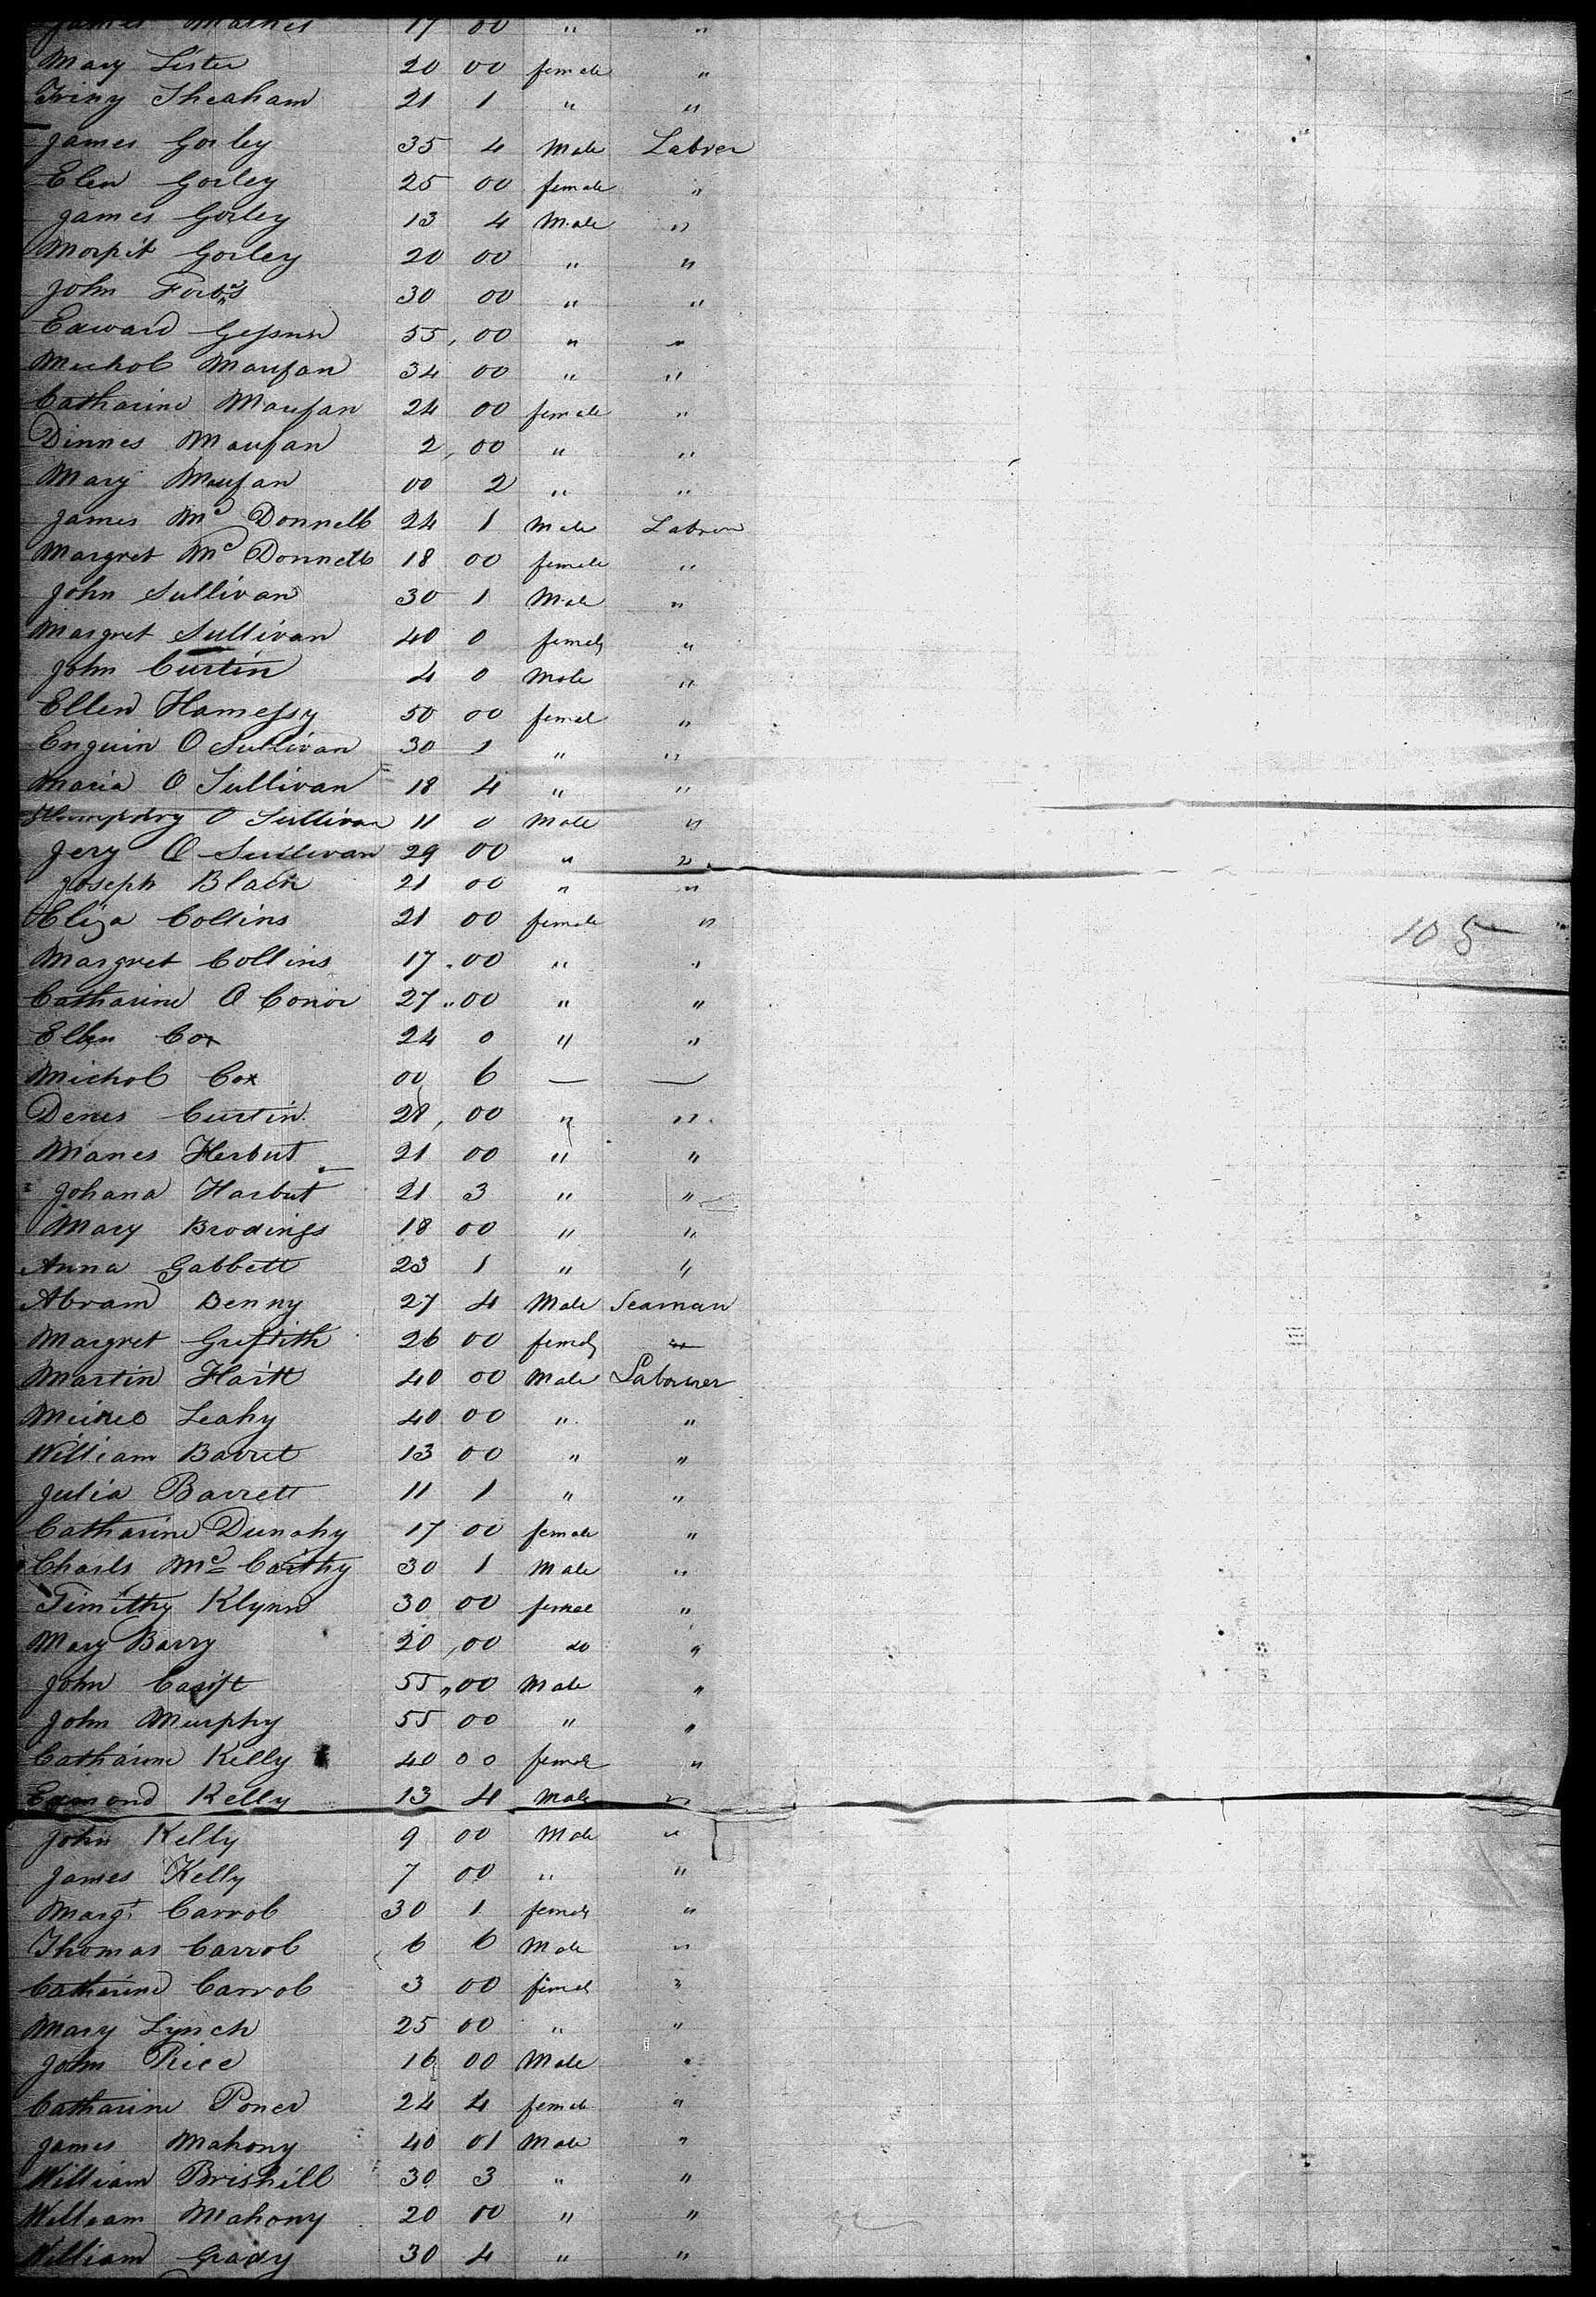 James Mathes 17 00 " "
Mary Lister 20 00 female "
Triny Sheaham 21 1 " "
James Gorley 35 4 Male Labrer
Elen Gorley 25 00 female "
James Gorley 13 4 Male "
Morpit Gorley 20 00 " "
John Forbes 30 00 " "
Edward 55 00 " "
Michol Maufan 34 00 " "
Catharine Maufan 24 00 female "
Dinnes Maufan 2 00 " "
Mary Maufan 00 2 " "
James Mc Donnell 24 1 Male Labrer
Margret Mc Donnell 18 00 female "
John Sullivan 30 1 Male "
Margret Sullivan 40 0 female "
John Curtin 4 0 Male "
Ellen Hamessy 50 00 femal "
Enguin O Sullivan 30 1 " "
Maria O Sullivan 18 4 " "
Humphry O Sullivan 11 0 Male "
Jery O Sullivan 29 00 " "
Joseph Blain 21 00 " "
Eliza Collins 21 00 female "
105
Margret Collins 17 00 " "
Catharine O Conor 27 00 " "
Ellen Cox 24 0 " "
Michol Cox 00 6 — —
Denes Curtin 28 00 " "
Manes Herbut 21 00 " "
Johana Harbut 21 3 " "
Mary Brodings 18 00 " "
Anna Gabbett 23 1 " "
Abram Benny 27 4 Male Seaman
Margret Griffith 26 00 female "
Martin Hartt 40 00 Male Labourer
Leahy 40 00 " "
William Barret 13 00 " "
Julia Barrett 11 1 " "
Catharine Dunahy 17 00 female "
Charls Mc Carthy 30 1 Male "
Timithy Klynn 30 00 female "
Mary Barry 20 00 do "
John 55 00 Male "
John Murphy 55 00 " "
Catharine Kelly 40 00 female "
Edmond Kelly 13 4 Male "
John Kelly 9 00 Male "
James Kelly 7 00 " "
Margt Carrol 30 1 female "
Thomas Carrol 6 6 Male "
Catharine Carrol 3 00 female "
Mary Lynch 25 00 " "
John Rice 16 00 Male "
Catharine Poner 24 4 female "
James Mahony 40 01 Male "
William Brishill 30 3 " "
William Mahony 20 00 " "
William Grady 30 4 " "